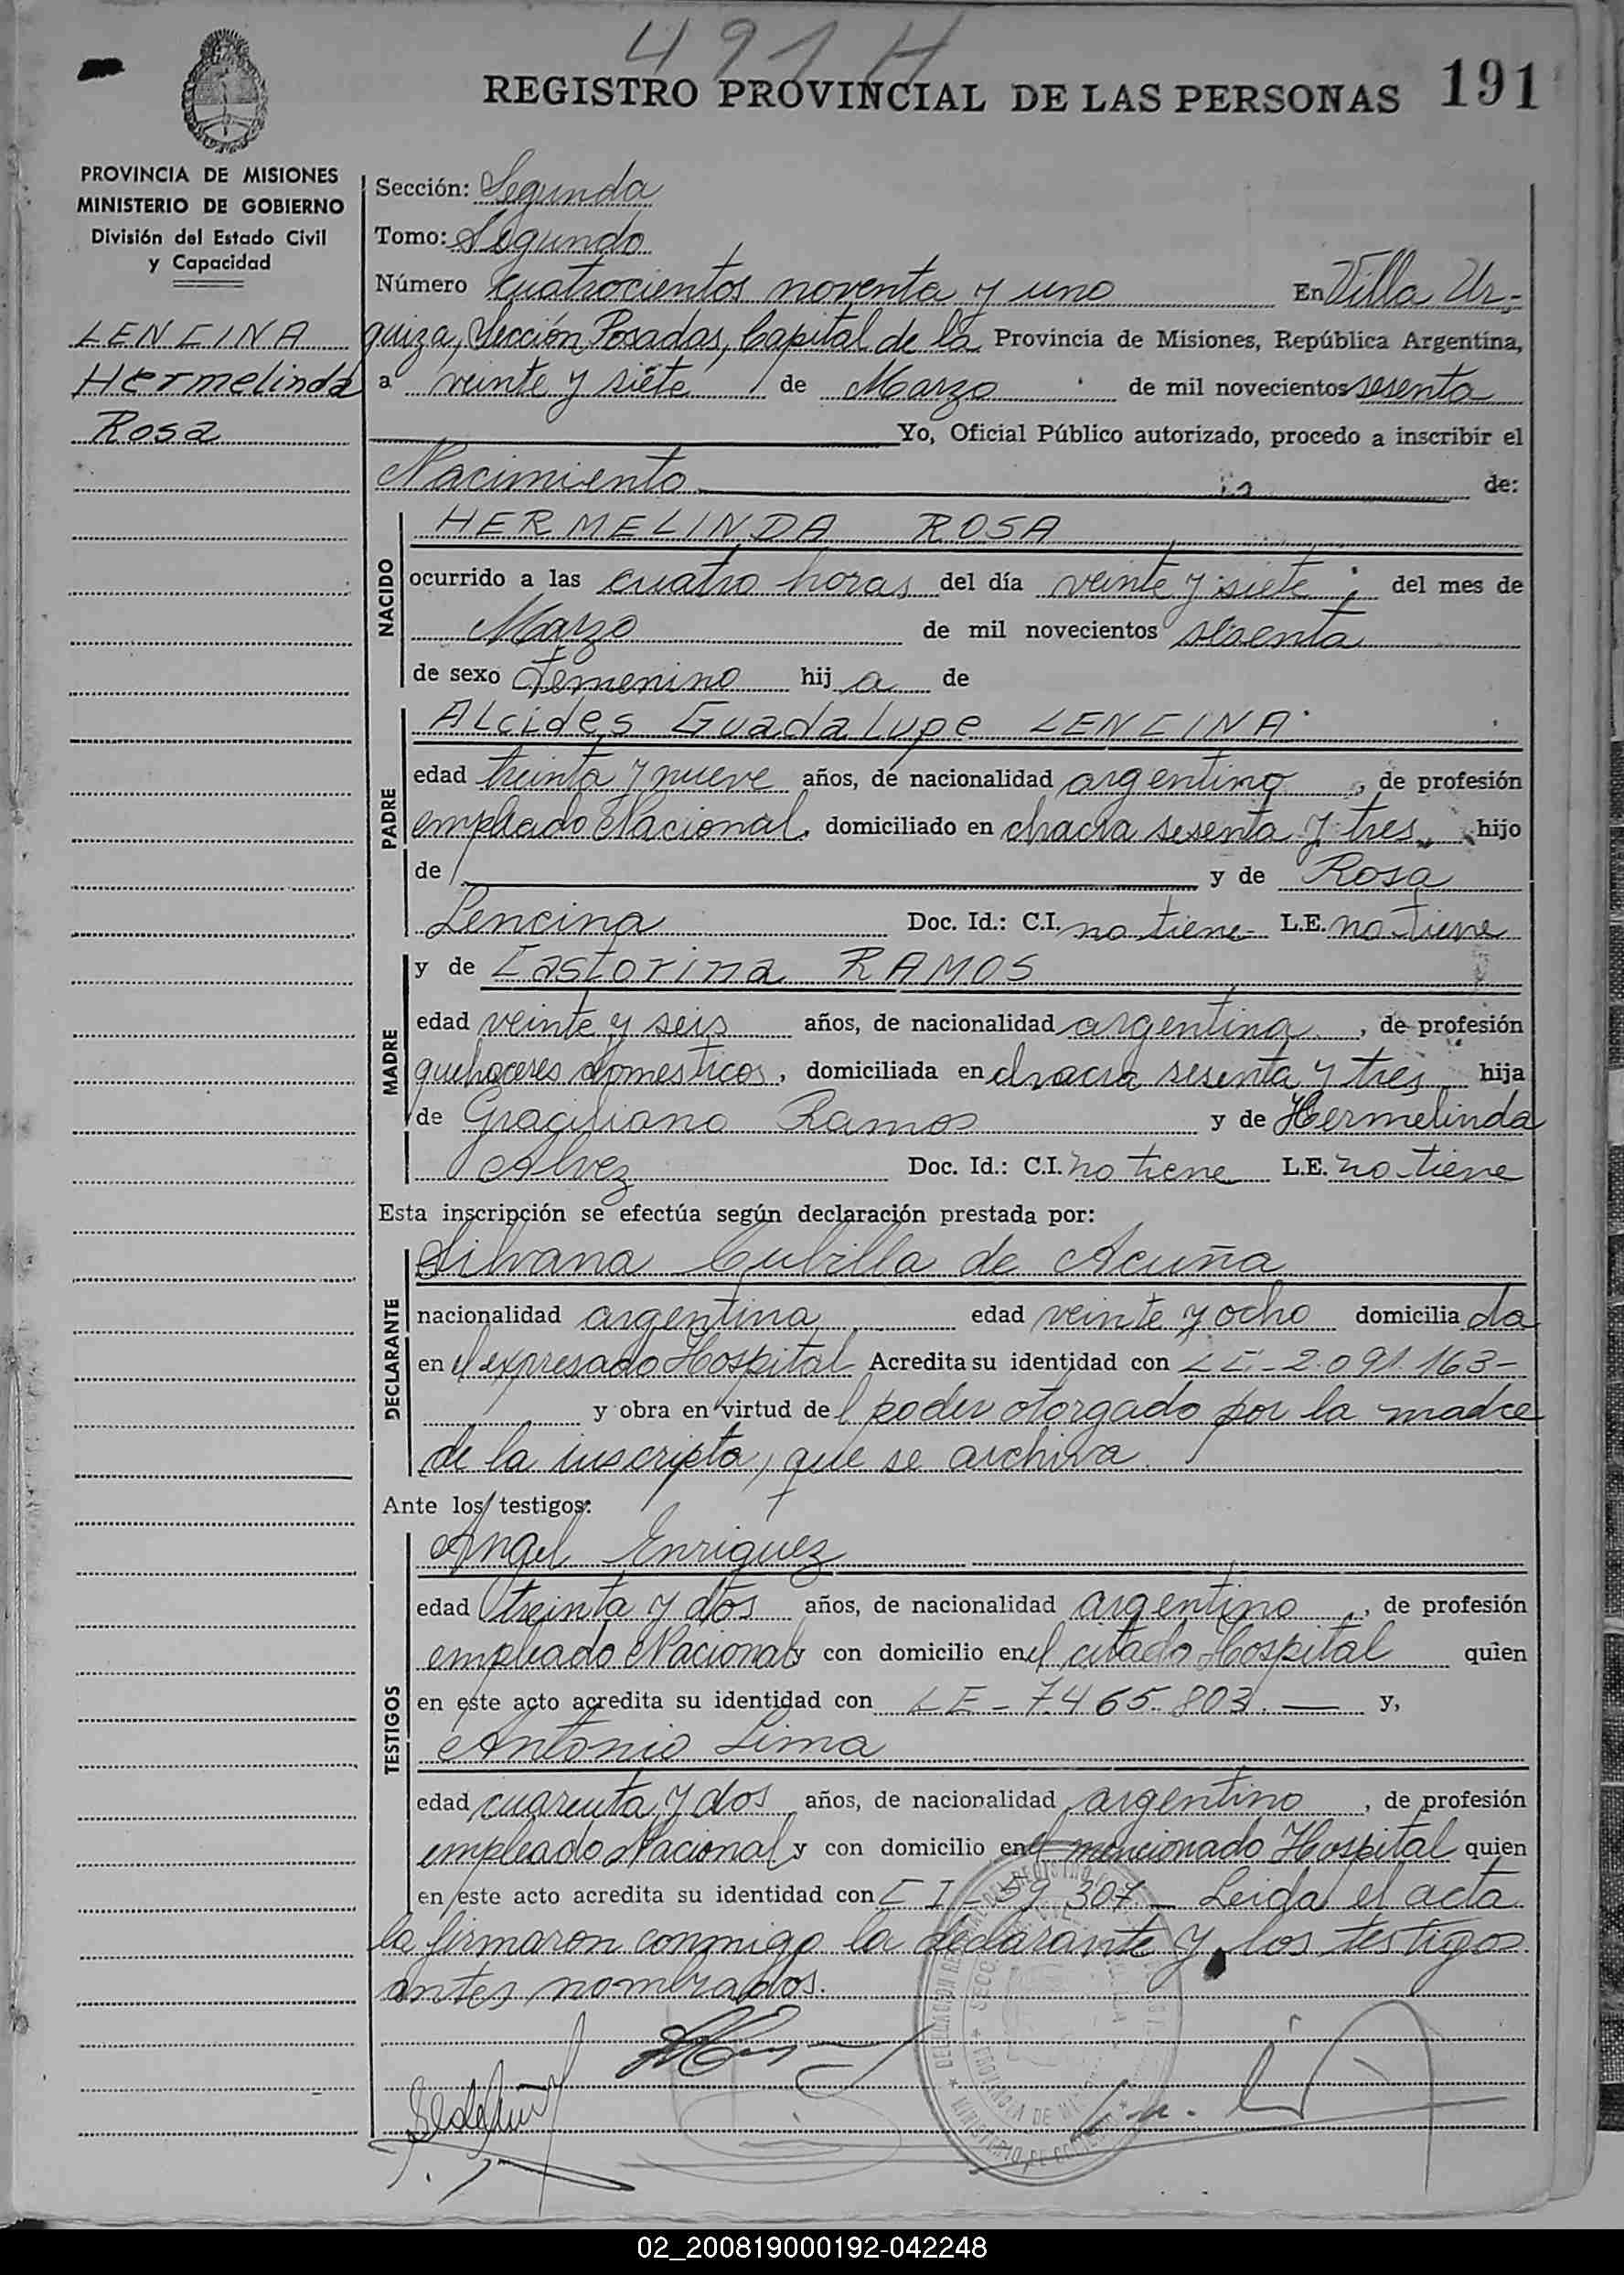 491 H
REGISTRO PROVINCIAL DE LAS PERSONAS 191
PROVINCIA DE MISIONES
MINISTERIO DE GOBIERNO
División del Estado Civil
y Capacidad
LENCINA
Hermelinda
Rosa
Sección: Segunda
Tomo: Segundo
Número Cuatrocientos noventa y uno En Villa Ur-
quiza, Sección Posadas, Capital de la Provincia de Misiones, República Argentina,
a veinte y siete de Marzo de mil novecientos sesenta
Yo, Oficial Público autorizado, procedo a inscribir el
Nacimiento de:
NACIDO
HERMELINDA ROSA
ocurrido a las cuatro horas del día veinte y siete del mes de
Marzo de mil novecientos sesenta
de sexo Femenino hij a de
PADRE
ALcides Guadalupe LENCINA
edad treinta y nueve años, de nacionalidad argentino, de profesión
empleado Nacional, domiciliado en chacra sesenta y tres, hijo
de y de Rosa
Lencina Doc. Id.: C.I. no tiene- L.E. no tiene
MADRE
y de Castorina RAMOS
edad veinte y seis años, de nacionalidad argentina, de profesión
quehaceres domesticos, domiciliada en chacra sesenta y tres hija
de Graciliano Ramos y de Hermelinda
Alvez Doc. Id.: C.I. no tiene L.E. no tiene
Esta inscripción se efectúa según declaración prestada por:
DECLARANTE
Silvana Cubilla de Acuña
nacionalidad argentina edad veinte y ocho domicilia da
en el expresado Hospital Acredita su identidad con LE-2.091.163-
y obra en virtud de l poder otorgado por la madre
de la inscripta, que se archiva.
Ante los testigos:
TESTIGOS
Angel Enriquez
edad treinta y dos años, de nacionalidad argentino, de profesión
empleado Nacional y con domicilio en el citado Hospital quien
en este acto acredita su identidad con LE-7.465.803.— y,
Antonio Lima
edad cuarenta y dos años, de nacionalidad argentino, de profesión
empleado Nacional y con domicilio en el mencionado Hospital quien
en este acto acredita su identidad con CI-59.307- Leida el acta
la firmaron conmigo la declarante y los testigos
antes nombrados.
02_200819000192-042248